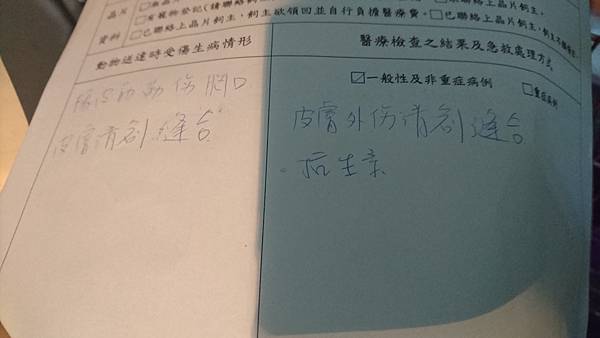 晶片
資料
□有寵物登記(請聯絡飼
□已聯絡上晶片飼主,飼主欲領回並自行負擔醫療費,□已聯絡上晶片飼主,
動物送達時受傷生病情形
醫療檢查之結果及急救處理方式
☑一般性及非重症病例
□重症病例
傷胸口
皮膚清創縫合
皮膚外伤清創縫合
抗生素